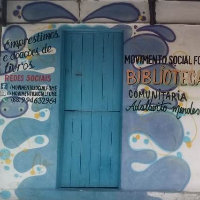 Empréstimos
e doações de
livros
REDES SOCIAIS
MOVIMENTO SOCIAL FO
BIBLIOTECA
COMUNITÁRIA
Adalberto Mendes